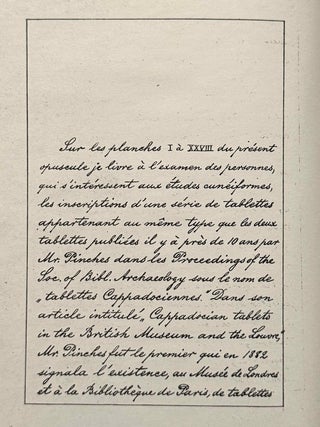 Sur les planches I à XXVIII du présent
opuscule je livre à l'examen des personnes,
qui s'intéressent aux études cunéiformes,
les inscriptions d'une série de tablettes
appartenant au même type que les deux
tablettes publiées il y à près de 10 ans par
Mr. Pinches dans les Proceedings of the
Soc. of Bibl. Archaeology sous le nom de
„tablettes Cappadociennes." Dans son
article intitulé „Cappadocian tablets
in the British Museum and the Louvre,"
Mr. Pinches fut le premier qui en 1882
signala l'existence, au Musée de Londres
et à la Bibliothèque de Paris, de tablettes